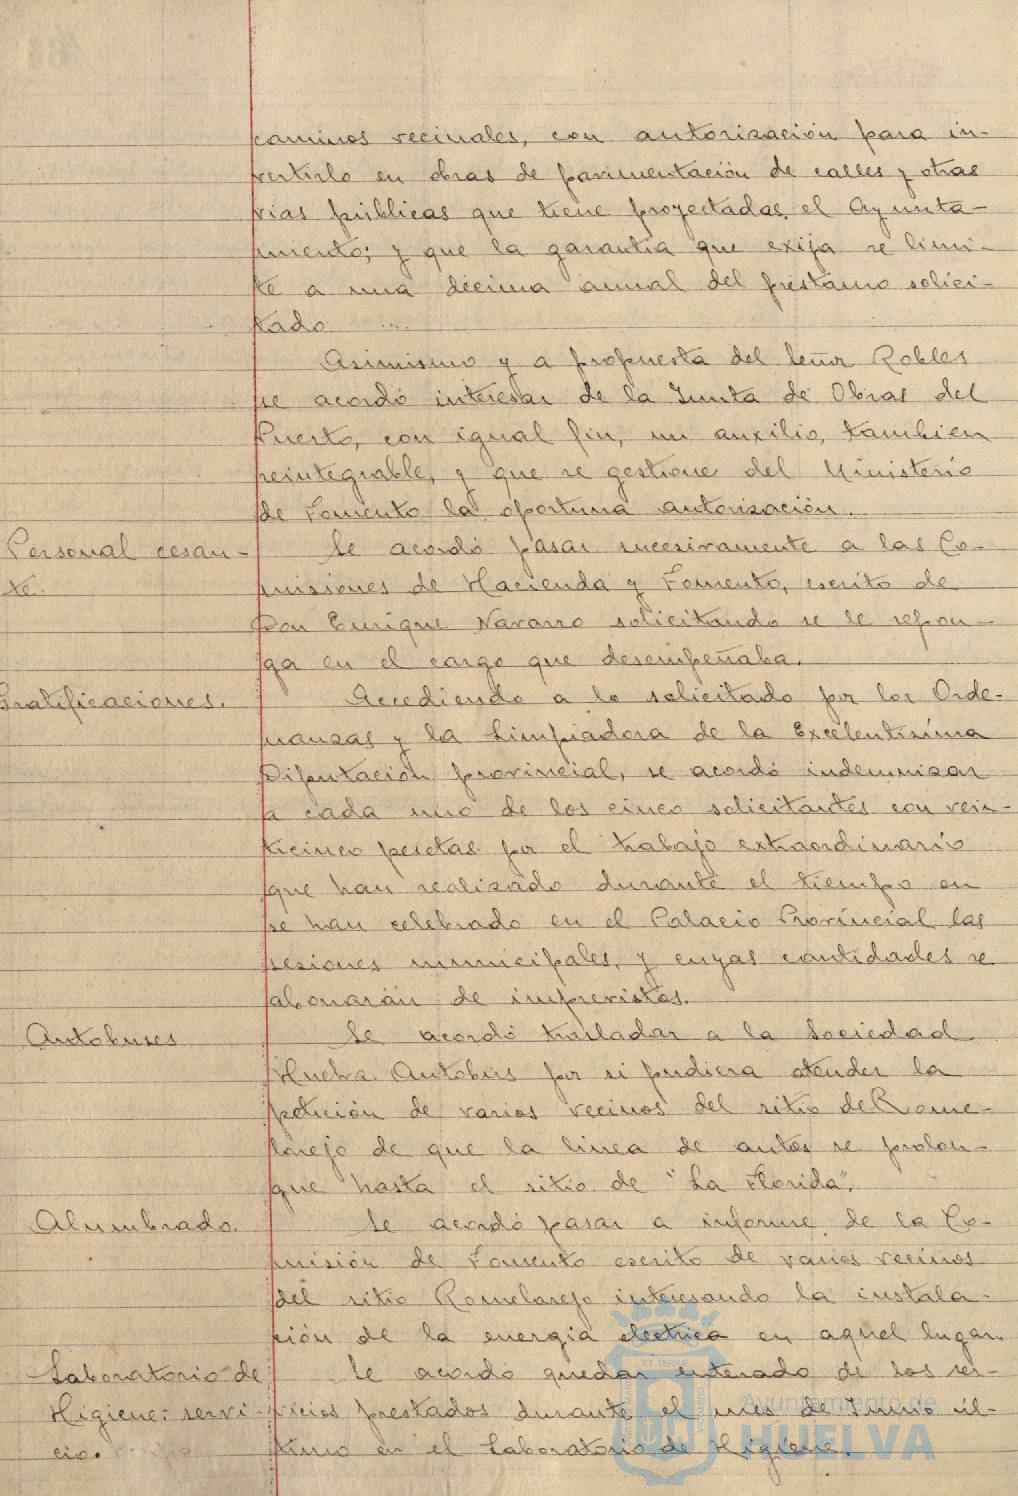 caminos vecinales, con autorización para in-
vertirlo en obras de pavimentación de calles y otras
vias públicas que tiene proyectadas el Ayunta-
miento; y que la garantía que exija se limi-
te a una décima anual del préstamo solici-
tado
Asimismo y a propuesta del Señor Robles
se acordó interesar de la Junta de Obras del
Puerto, con igual fin, un auxilio, tambien
reintegrable, y que se gestione del Ministerio
de Fomento la oportuna autorización.
Personal cesan-
te.
Se acordó pasar sucesivamente a las Co-
misiones de Hacienda y Fomento, escrito de
Don Enrique Navarro solicitando se le repon-
ga en el cargo que desempeñaba.
Gratificaciones.
Accediendo a lo solicitado por los Orde-
nanzas y la Limpiadora de la Excelentísima
Diputación provincial, se acordó indemnizar
a cada uno de los cinco solicitantes con vein-
ticinco pesetas por el trabajo extraordinario
que han realizado durante el tiempo en
se han celebrado en el Palacio Provincial las
sesiones municipales, y cuyas cantidades se
abonarán de imprevistos.
Autobuses
Se acordó trasladar a la Sociedad
Huelva Autobús por si pudiera atender la
petición de varios vecinos del sitio de Rome-
larejo de que la línea de autos se prolon-
gue hasta el sitio de "La Florida".
Alumbrado.
Se acordó pasar a informe de la Co-
misión de Fomento escrito de varios vecinos
del sitio Romelarejo interesando la instala-
ción de la energía eléctrica en aquel lugar.
Laboratorio de
Higiene: servi-
cio.
Se acordó quedar enterado de los ser-
vicios prestados durante el mes de Junio úl-
timo en el Laboratorio de Higiene.
Ayuntamiento de
HUELVA